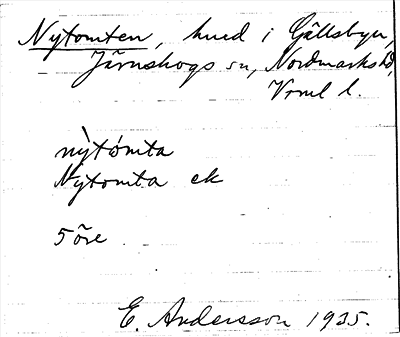 Nytomten, hmd i Gällsbyn,
Järnskogs sn, Nordmarks hd,
Vrml l.
nỳtómta
Nytomta ek
5 öre
E. Andersson 1935.